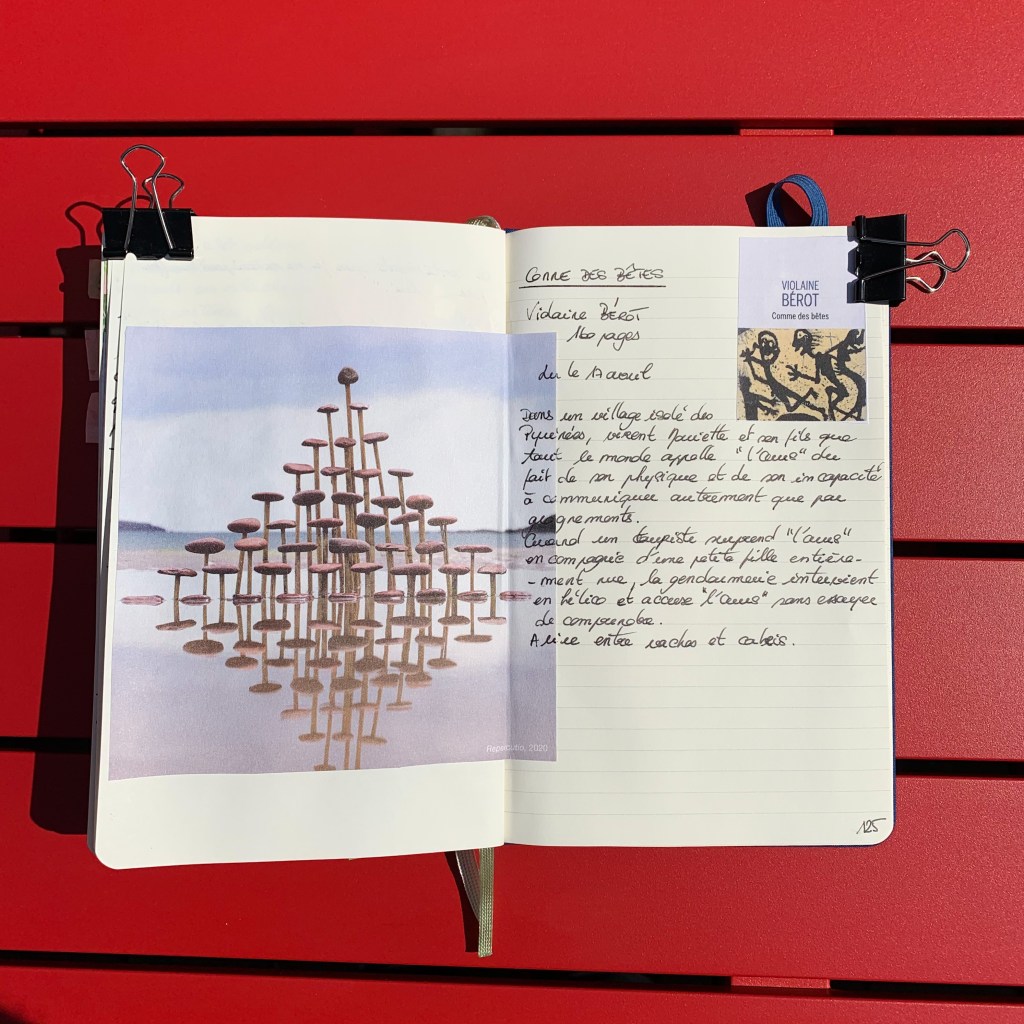 COMME DES BÊTES
Violaine BÉROT
160 pages
du le 17 aout
Dans un village isolé des
Pyrénées, vivent Mariette et son fils que
tout le monde appelle "l'ours" du
fait de son physique et de son incapacité
à communiquer autrement que par
grognements.
Quand un touriste surprend "l'ours"
en compagnie d'une petite fille entière-
-ment nue, la gendarmerie intervient
en hélico et accuse "l'ours" sans essayer
de comprendre.
A lire entre vaches et cabris.
125
VIOLAINE
BÉROT
Comme des bêtes
Repercutio, 2020